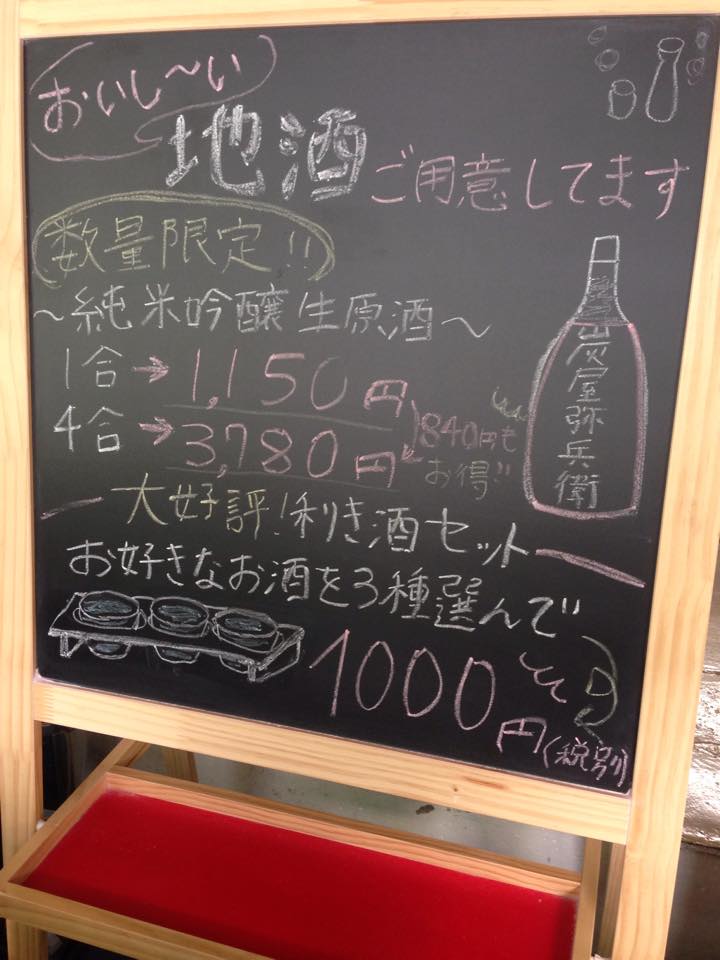 おいし～い
地酒ご用意してます
数量限定!!
～純米吟醸生原酒～
1合→1,150円
4合→3,780円
840円も
お得!!
灰屋弥兵衛
大好評!利き酒セット
お好きなお酒を3種選んで
1000円
(税別)